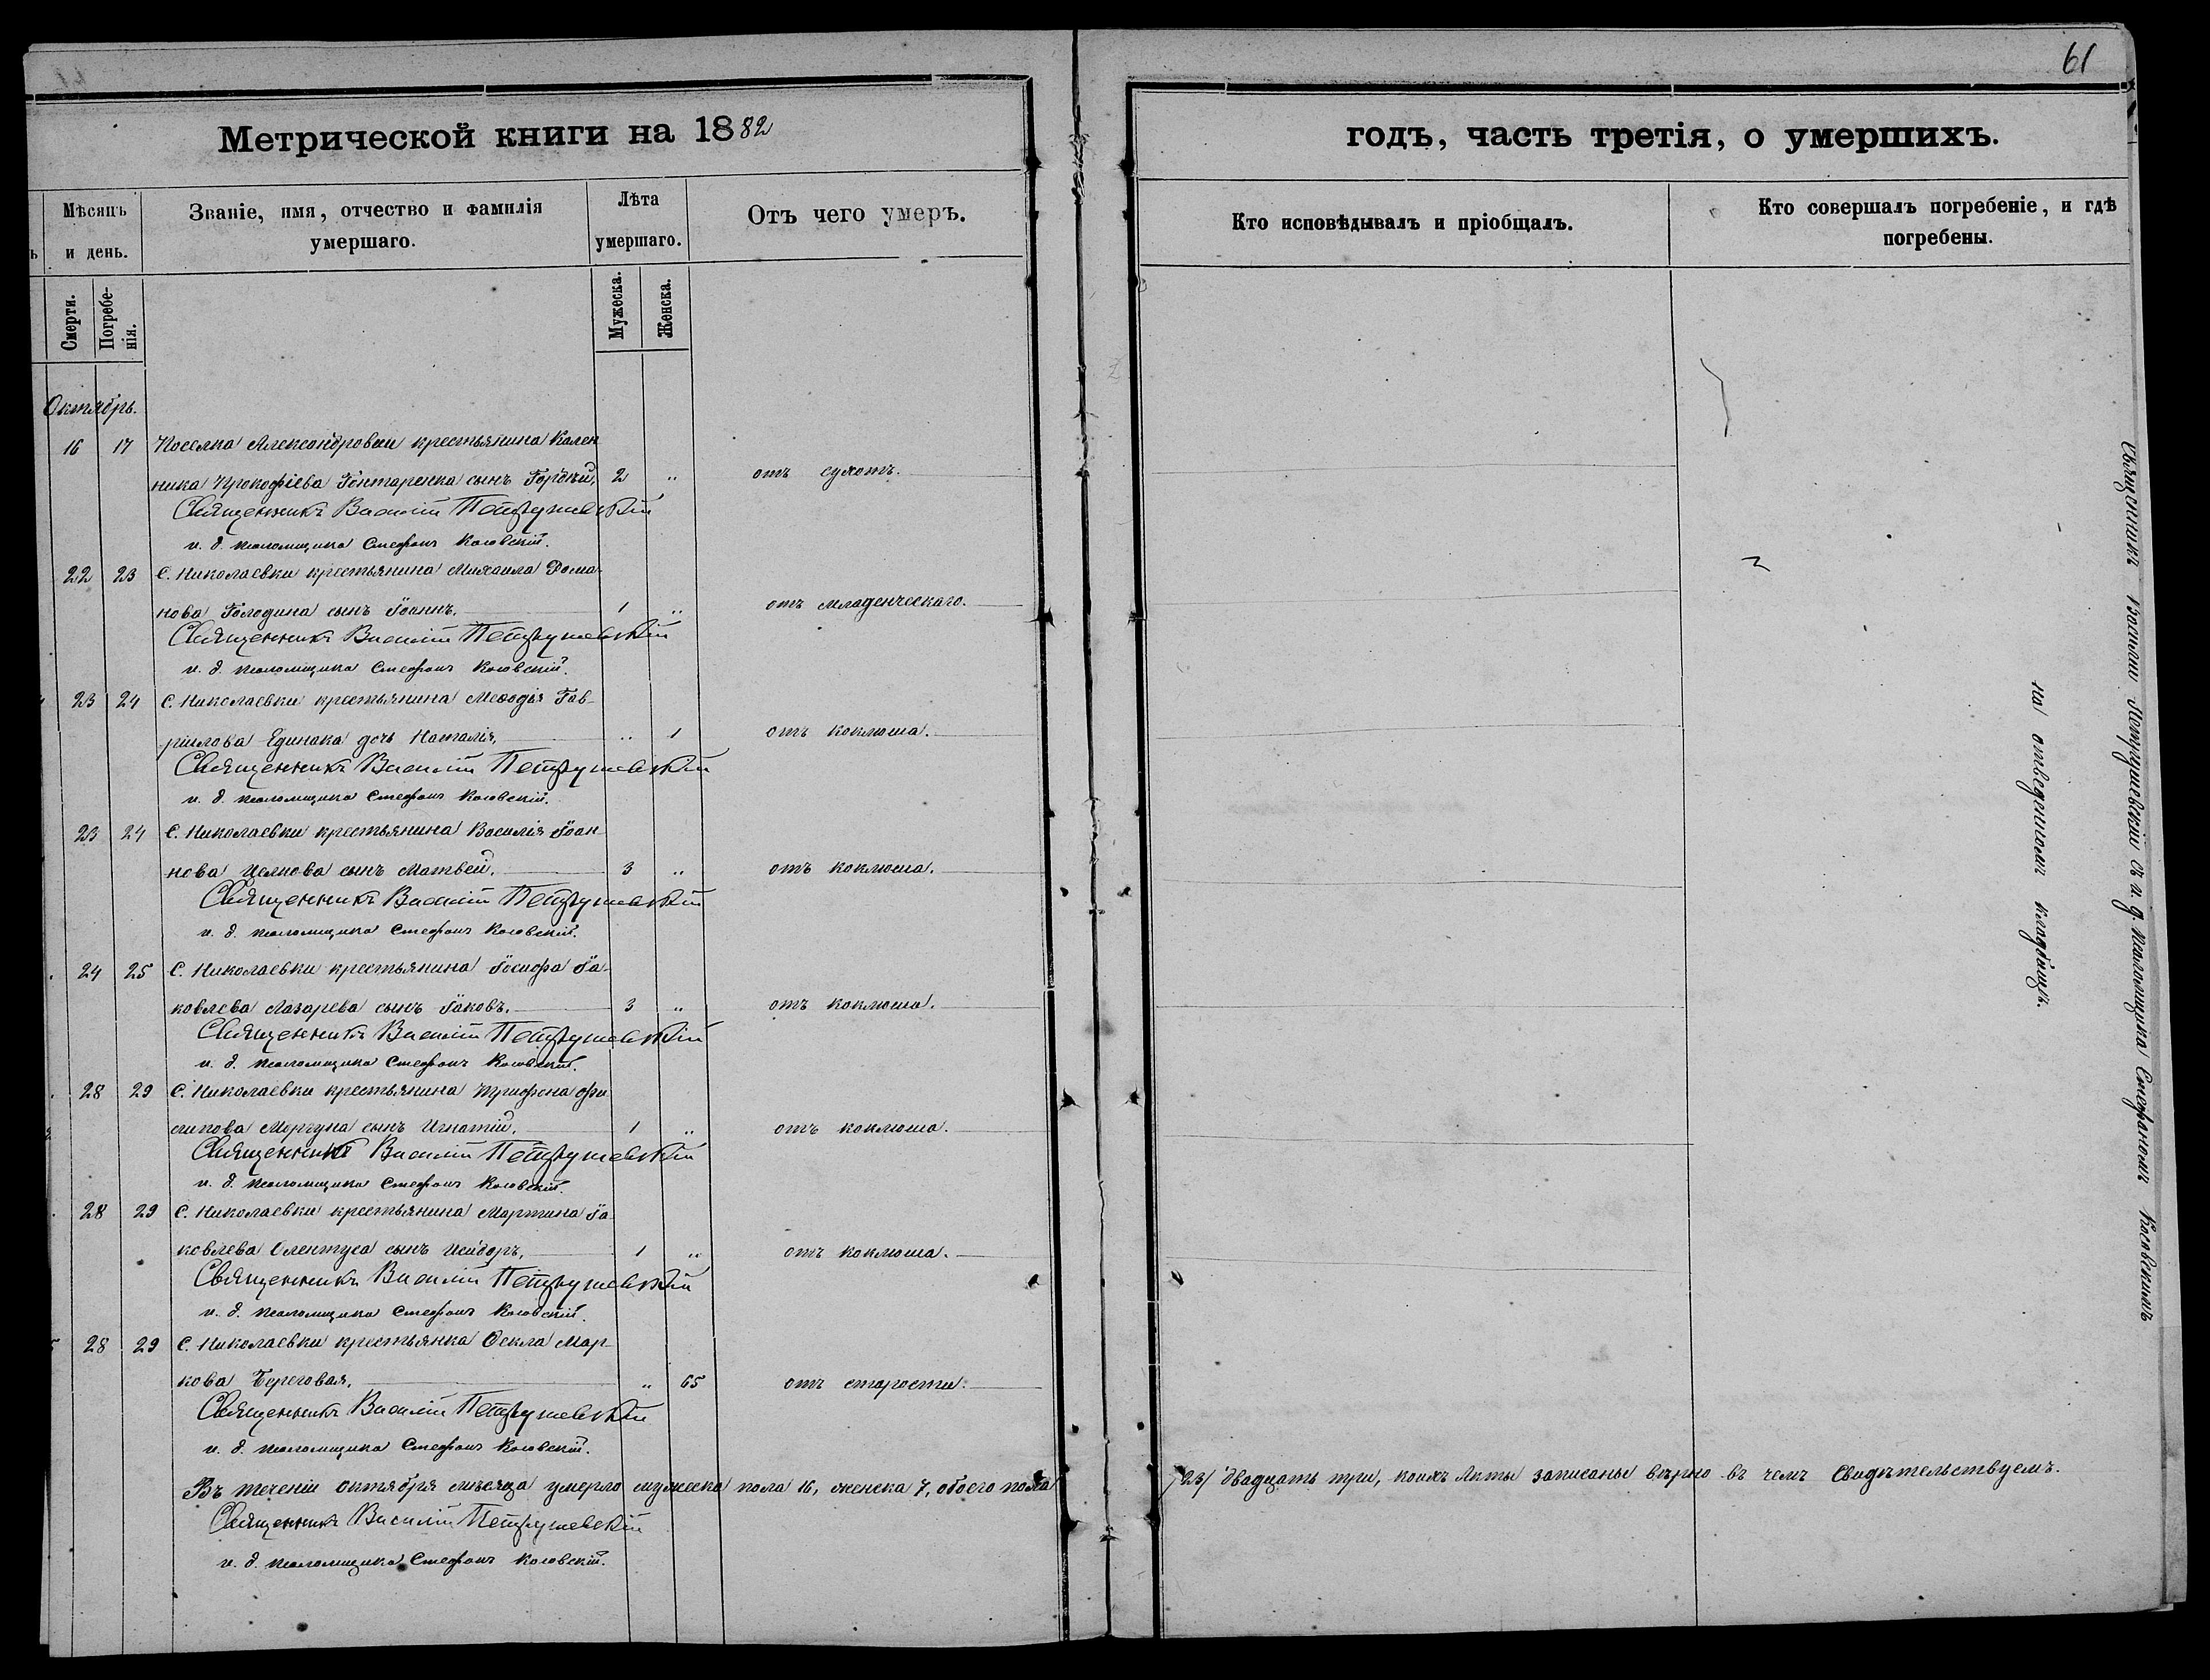 61
Метрической книги на 1882
годъ, часть третія, о умершихъ.
Мѣсяцъ и день.
Званіе, имя, отчество и фамилія умершаго.
Лѣта умершаго.
Отъ чего умеръ.
Кто исповѣдывалъ и пріобщалъ.
Кто совершалъ погребеніе, и гдѣ погребены.
Смерти.
Погребенія.
Мужеска.
Женска.
Октябрь.
16 17 Поселка Александровки крестьянина Кален
ника Прокофіева Гонтаренка сынъ Гордѣй, 2 „ отъ сухотъ.
Священникъ Василій Петрушевскій
и. д. псаломщика Стефанъ Косовскій.
22 23 С. Николаевки крестьянина Михаила Рома-
нова Голодина сынъ Іоаннъ. 1 „ отъ младенческаго.
Священникъ Василій Петрушевскій
и. д. псаломщика Стефанъ Косовскій.
23 24 С. Николаевки крестьянина Меѳодія Гав-
ріилова Единака дочь Наталія, „ 1 отъ коклюша.
Священникъ Василій Петрушевскій
и. д. псаломщика Стефанъ Косовскій.
23 24 С. Николаевки крестьянина Василія Іоан-
нова сынъ Матвѣй. 3 „ отъ коклюша.
Священникъ Василій Петрушевскій
и. д. псаломщика Стефанъ Косовскій.
24 25 С. Николаевки крестьянина Іосифа Іа-
ковлева Лазарева сынъ Іаковъ. 3 „ отъ коклюша.
Священникъ Василій Петрушевскій
и. д. псаломщика Стефанъ Косовскій.
28 29 С. Николаевки крестьянина Трифона Фи
липова Моргуна сынъ Игнатій. 1 „ отъ коклюша.
Священникъ Василій Петрушевскій
и. д. псаломщика Стефанъ Косовскій.
28 29 С. Николаевки крестьянина Мартина Іа
ковлева сынъ Исидоръ, 1 „ отъ коклюша.
Священникъ Василій Петрушевскій
и. д. псаломщика Стефанъ Косовскій.
28 29 С. Николаевки крестьянка Ѳекла Мар-
кова Береговая. „ 65 отъ старости.
Священникъ Василій Петрушевскій
и. д. псаломщика Стефанъ Косовскій.
Въ теченіи октября мѣсяца умерло мужеска пола 16, женска 7, обоего пола /23/ двадцать три, коихъ Акты записаны вѣрно въ чемъ Свидѣтельствуемъ.
Священникъ Василій Петрушевскій
и. д. псаломщика Стефанъ Косовскій.
Священникъ Василій Петрушевскій съ и. д. псаломщика Стефаномъ Косовскимъ
на отведенномъ кладбищѣ.